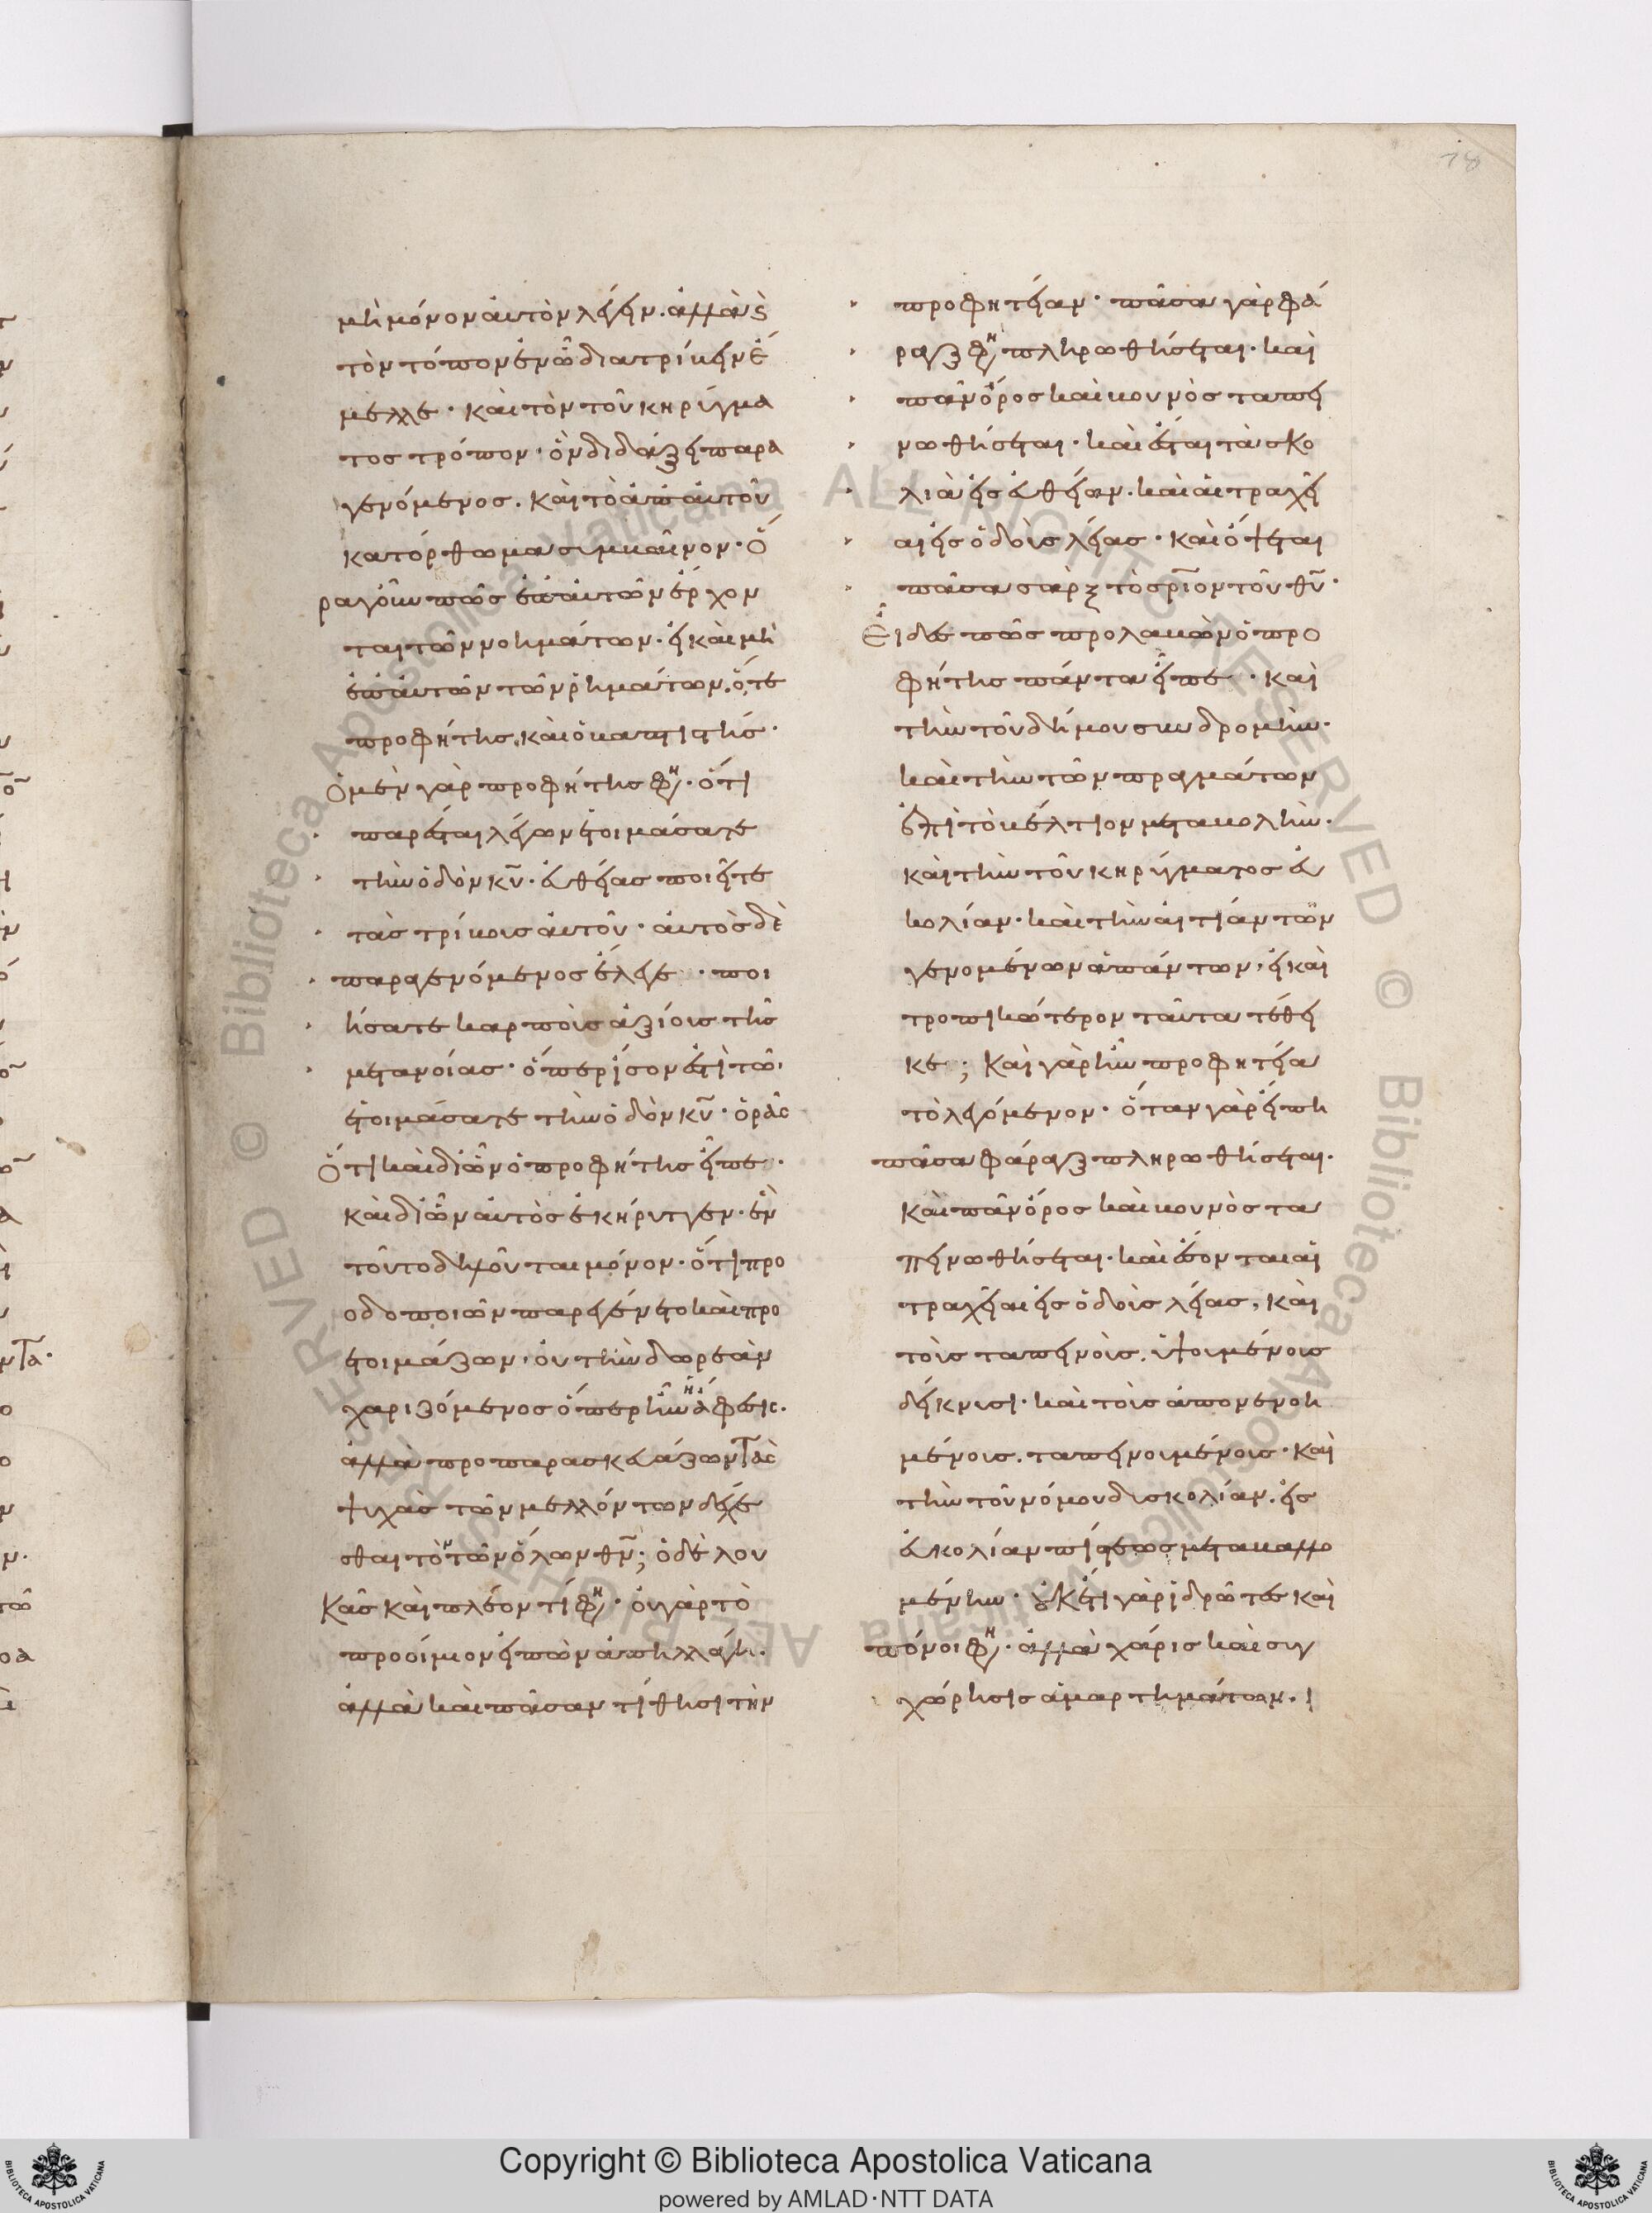 78
μὴ μόνον αὐτὸν λέγειν. ἀλλὰ ϗ
τὸν τόπον ἐν ᾧ διατρίβειν ἔ
μελλε· καὶ τὸν τοῦ κηρύγμα
τος τρόπον· ὃν διδάξει παρα
γενόμενος. καὶ τὸ ἀπ' αὐτοῦ
κατόρθωμα συμβαῖνον· ὅ
ρα γοῦν πῶς ἐπὶ αὐτῶν ἔρχον
ται τῶν νοημάτων. εἰ καὶ μὴ
ἐπὶ αὐτῶν τῶν ῥημάτων. ὅ τε
προφήτης, καὶ ὁ βαπτιστής·
ὁ μὲν γὰρ προφήτης φη· ὅτι
παρέσται λέγων ἑτοιμάσατε
τὴν ὁδὸν κυ· εὐθείας ποιεῖτε
τὰς τρίβους αὐτοῦ· αὐτὸς δὲ
παραγενόμενος ἔλεγε· ποι
ήσατε καρποὺς ἀξίους τῆς
μετανοίας· ὅπερ ἴσον ἐστὶ τῶ.
ἑτοιμάσατε τὴν ὁδὸν κυ· ὁρᾶς
ὅτι καὶ δι' ὧν ὁ προφήτης εἶπε·
καὶ δι' ὧν αὐτὸς ἐκήρυττεν· ἓν
τοῦτο δηλοῦται μόνον· ὅτι προ
οδοποιῶν παρεγένετο καὶ προ
ετοιμάζων· οὐ τὴν δωρεὰν
χαριζόμενος ὅπερ ἦν ἡ ἄφεσις.
ἀλλὰ προπαρασκευάζων τὰς
ψυχὰς τῶν μελλόντων δέχε
σθαι τὸν τῶν ὅλων θν; ὁ δὲ λου
κᾶς καὶ πλέον τί φη· οὐ γὰρ τὸ
προοίμιον εἰπὼν ἀπηλλάγη.
ἀλλὰ καὶ πᾶσαν τίθησι τὴν
προφητείαν· πᾶσα γὰρ φά
ραγξ φη πληρωθήσεται· καὶ
πᾶν ὄρος καὶ βουνὸς ταπει
νωθήσεται· καὶ ἔσται τὰ σκο
λιὰ εἰς εὐθεῖαν. καὶ αἱ τραχεῖ
αι εἰς ὁδοὺς λείας· καὶ ὄψεται
πᾶσα σὰρξ τὸ σριον τοῦ θυ·
εἶδες πῶς προλαβὼν ὁ προ
φήτης πάντα εἶπε· καὶ
τὴν τοῦ δήμου συνδρομὴν·
καὶ τὴν τῶν πραγμάτων
ἐπὶ τὸ βέλτιον μεταβολὴν·
καὶ τὴν τοῦ κηρύγματος εὐ
κολίαν· καὶ τὴν αἰτίαν τῶν
γενομένων ἁπάντων, εἰ καὶ
τροπικώτερον ταῦτα τέθει
κε; καὶ γὰρ ἦν προφητεία
τὸ λεγόμενον· ὅταν γὰρ εἴπη
πᾶσα φάραγξ πληρωθήσεται.
καὶ πᾶν ὄρος καὶ βουνὸς τα
πεινωθήσεται· καὶ ἔσονται αἱ
τραχεῖαι εἰς ὁδοὺς λείας, καὶ
τοὺς ταπεινοὺς. ὑψουμένους
δείκνυσι· καὶ τοὺς ἀπονενοη
μένους. ταπεινουμένους· καὶ
τὴν τοῦ νόμου δυσκολίαν. εἰς
εὐκολίαν πίστεως μεταβαλλο
μένην· οὐκέτι γὰρ ἱδρῶτες καὶ
πόνοι φη· ἀλλὰ χάρις καὶ συγ
χώρησις ἁμαρτημάτων.
Copyright © Biblioteca Apostolica Vaticana
powered by AMLAD·NTT DATA